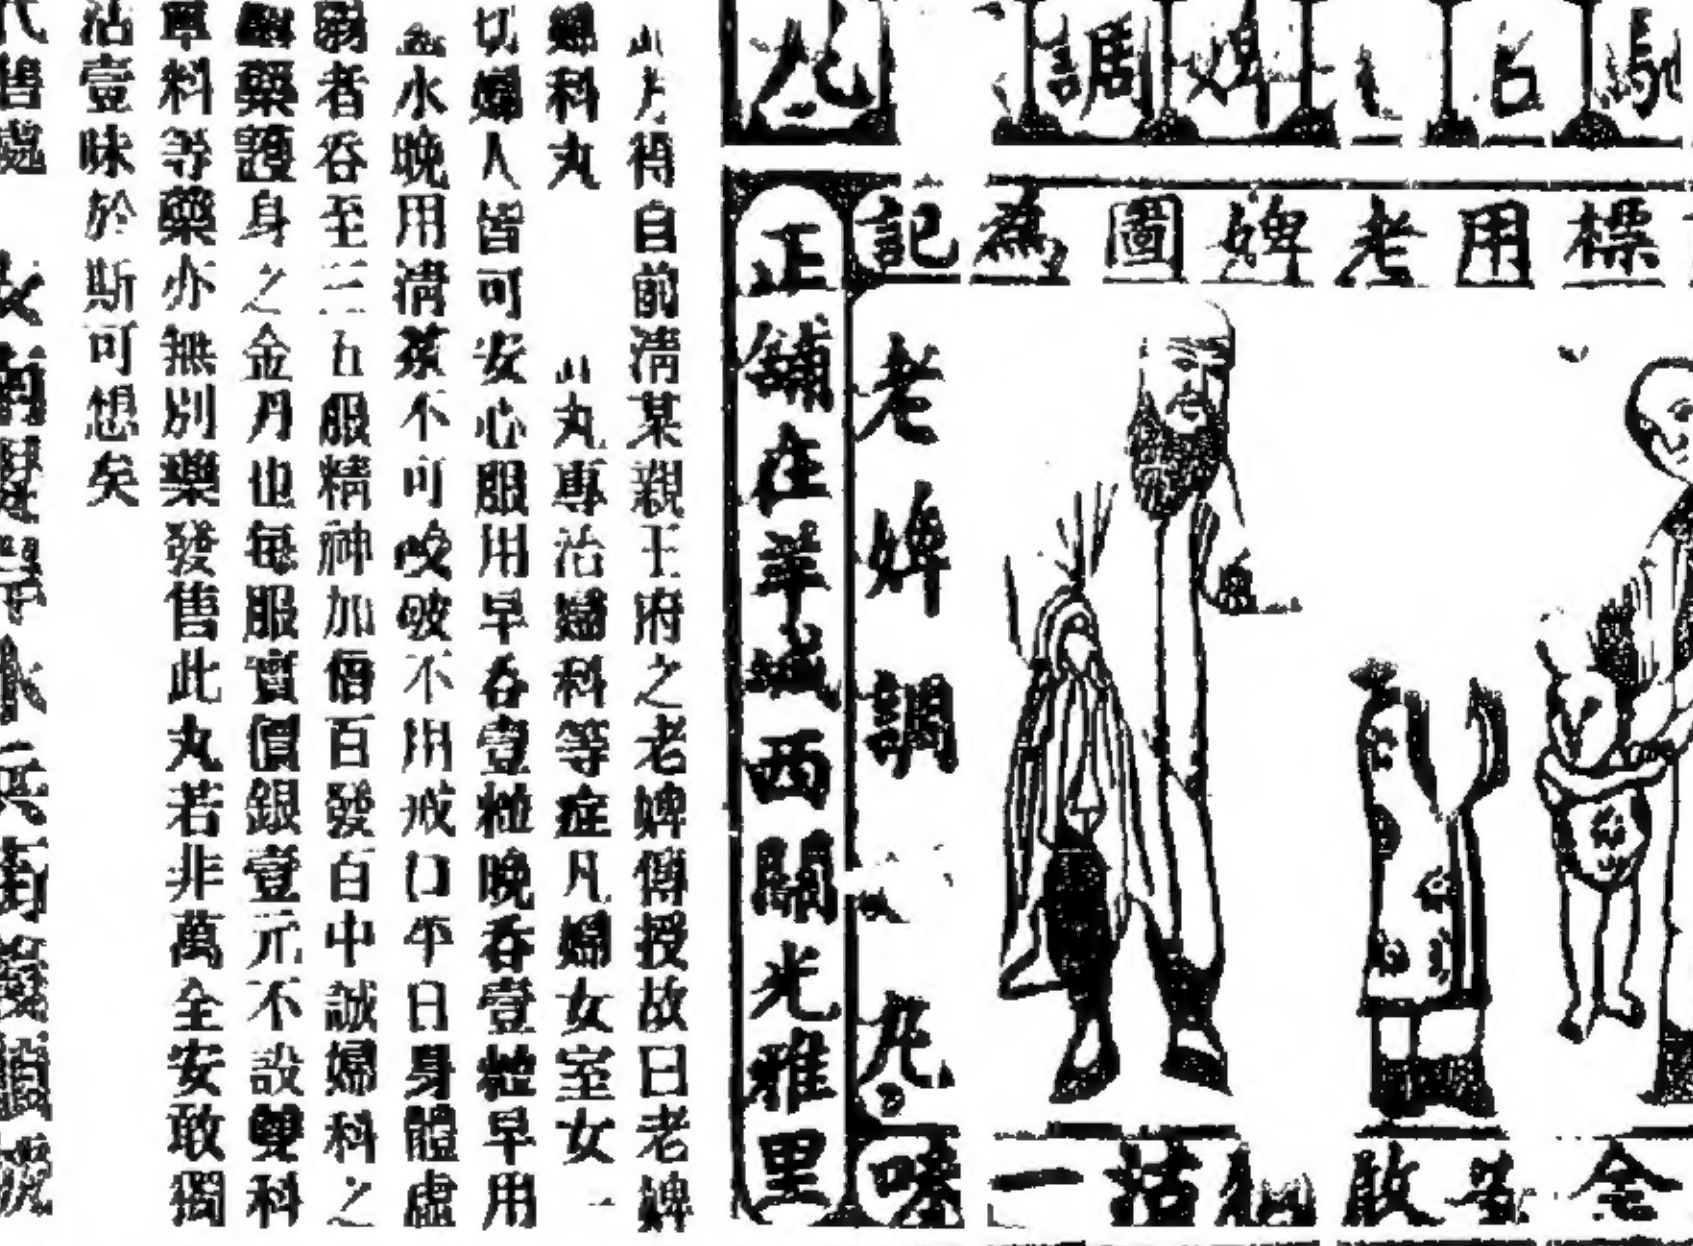 馳名 婢調 丸
標用老婢圖為記
老婢調 丸
金 敢獨沽一味
正舖在羊城西關光雅里
此方得自前清某親王府之老婢傳授故曰老婢
婦科丸 此丸專治婦科等症凡婦女室女一
切婦人皆可安心服用早吞壹粒晚吞壹粒早用
盐水晚用清茶不可咬破不用戒口平日身體虛
弱者吞至三五服精神加倍百發百中誠婦科之
藥護身之金丹也每服實價銀壹元不設雙科
單料等藥亦無別藥發售此丸若非萬全安敢獨
沽壹味於斯可想矣
代售處